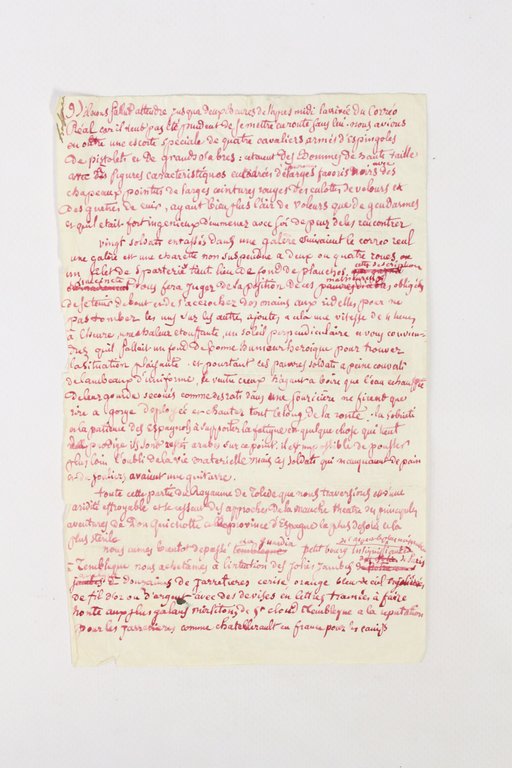 9) il nous fallut attendre jusque deux heures de l'apres midi l'arrivée du Correo
Réal car il n'eut pas été prudent de se mettre en route sans lui. nous avions
en outre une escorte spéciale de quatre cavaliers armés d'espingoles
de pistolets et de grands sabres. c'etaient des hommes de haute taille
avec des figures caracteristiques encadrées d'enormes favoris noirs avec des
chapeaux pointus de larges ceintures rouges des culottes de velours et
des guetres de cuir, ayant bien plus l'air de voleurs que de gendarmes
et qu'il etait fort ingenieux d'emmener avec soi de peur de les rencontrer
vingt soldats entassés dans une galère suivaient le correo real
une galère est une charette non suspendue a deux ou quatre roues ou
un filet de sparterie tient lieu de fond de planches. cette description
succincte vous fera juger de la position de ces malheureux obligés
de se tenir debout et de s'accrocher des mains aux ridelles pour ne
pas tomber les uns sur les autres, ajoutez a cela une vitesse de 4 lieues
a l'heure, une chaleur etouffante, un soleil perpendiculaire et vous convien-
drez qu'il fallait un fond de bonne humeur heroïque pour trouver
la situation plaisante. et pourtant ces pauvres soldats a peine couverts
de lambeaux d'uniforme, le ventre creux n'ayant a boire que l'eau echauffée
de leur gourde secoués comme des rats dans une souricière ne firent que
rire a gorge deployée et chanter tout le long de la route. la sobrieté
et la patience des espagnols a supporter la fatigue est quelque chose qui tient
du prodige ils sont restés arabes sur ce point. il est impossible de pousser
plus loin l'oubli de la vie materielle mais ces soldats qui manquaient de pain
et de souliers avaient une guitarre.
toute cette partie du Royaume de Tolede que nous traversions est d'une
aridité effroyable et se ressent des approches de la manche theatre des principales
aventures de Don Quichotte et la province d'Espagne la plus desolée et la
plus sterile
nous eumes bientot depassé la Guardia petit bourg insignifiant
a Tembleque nous achetames a l'intention des jolies jambes de Paris
douzaine de jarretieres cerise orange bleu de ciel
de fil d'or ou d'argent avec des devises en lettres tramées a faire
honte aux plus galans mirlitons de St cloud. Tembleque a la reputation
pour les jarretieres comme chatellerault en france pour les canifs